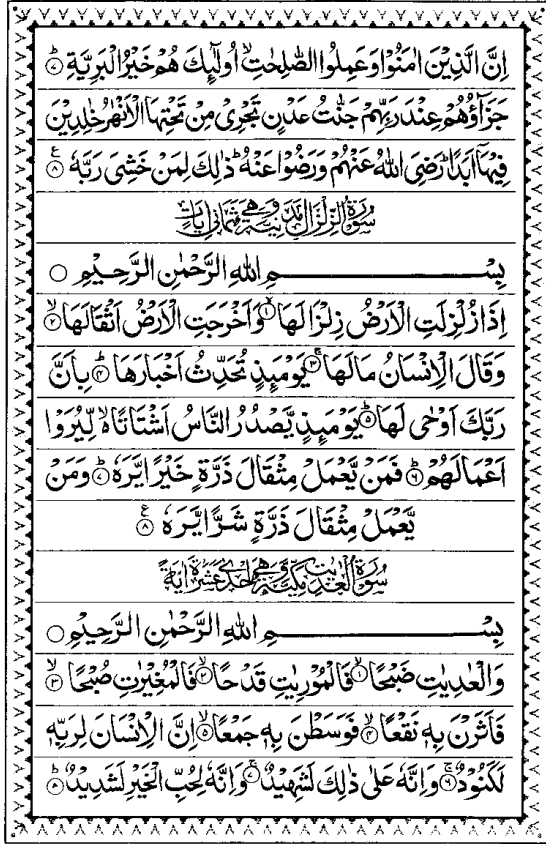 اِنَّ الَّذِيْنَ اٰمَنُوْا وَعَمِلُوا الصّٰلِحٰتِ ۙ اُولٰٓئِكَ هُمْ خَيْرُ الْبَرِيَّةِ ؕ۷
جَزَآؤُهُمْ عِنْدَ رَبِّهِمْ جَنّٰتُ عَدْنٍ تَجْرِىْ مِنْ تَحْتِهَا الْاَنْهٰرُ خٰلِدِيْنَ
فِيْهَاۤ اَبَدًا ؕ رَضِىَ اللّٰهُ عَنْهُمْ وَرَضُوْا عَنْهُ ؕ ذٰلِكَ لِمَنْ خَشِىَ رَبَّهٗ ۸
سُوْرَةُ الزِّلْزَالِ مَدَنِيَّةٌ وَّهِيَ ثَمَانِيْ اٰيَاتٍ
بِسْــــــــمِ اللّٰهِ الرَّحْمٰنِ الرَّحِيْمِ ○
اِذَا زُلْزِلَتِ الْاَرْضُ زِلْزَالَهَا ۙ۱ وَاَخْرَجَتِ الْاَرْضُ اَثْقَالَهَا ۙ۲
وَقَالَ الْاِنْسَانُ مَا لَهَا ۚ۳ يَوْمَئِذٍ تُحَدِّثُ اَخْبَارَهَا ؕ۴ بِاَنَّ
رَبَّكَ اَوْحٰى لَهَا ؕ۵ يَوْمَئِذٍ يَّصْدُرُ النَّاسُ اَشْتَاتًا ۙ لِّيُرَوْا
اَعْمَالَهُمْ ؕ۶ فَمَنْ يَّعْمَلْ مِثْقَالَ ذَرَّةٍ خَيْرًا يَّرَهٗ ؕ۷ وَمَنْ
يَّعْمَلْ مِثْقَالَ ذَرَّةٍ شَرًّا يَّرَهٗ ۸
سُوْرَةُ الْعٰدِيٰتِ مَكِّيَّةٌ وَّهِيَ اِحْدٰى عَشْرَةَ اٰيَةً
بِسْــــــــمِ اللّٰهِ الرَّحْمٰنِ الرَّحِيْمِ ○
وَالْعٰدِيٰتِ ضَبْحًا ۙ۱ فَالْمُوْرِيٰتِ قَدْحًا ۙ۲ فَالْمُغِيْرٰتِ صُبْحًا ۙ۳
فَاَثَرْنَ بِهٖ نَقْعًا ۙ۴ فَوَسَطْنَ بِهٖ جَمْعًا ۙ۵ اِنَّ الْاِنْسَانَ لِرَبِّهٖ
لَكَنُوْدٌ ۚ۶ وَاِنَّهٗ عَلٰى ذٰلِكَ لَشَهِيْدٌ ۚ۷ وَاِنَّهٗ لِحُبِّ الْخَيْرِ لَشَدِيْدٌ ؕ۸